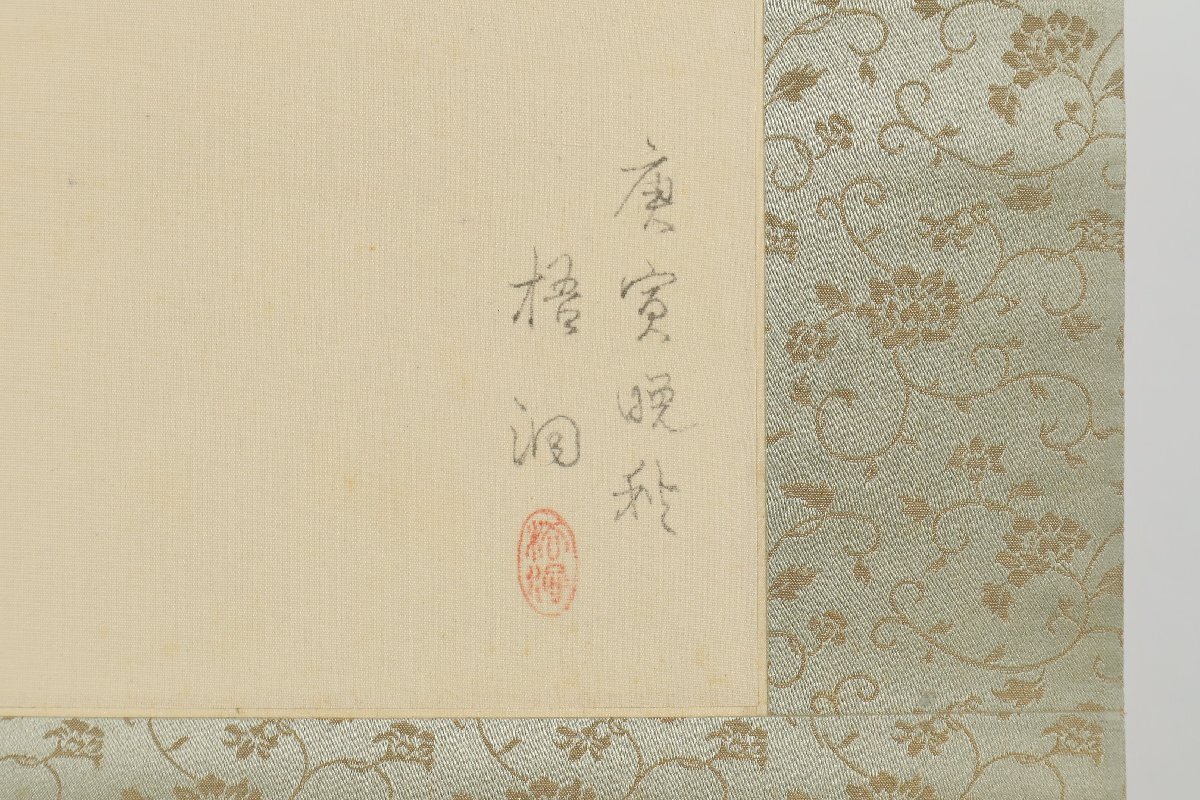 庚寅晩秋
梧洞